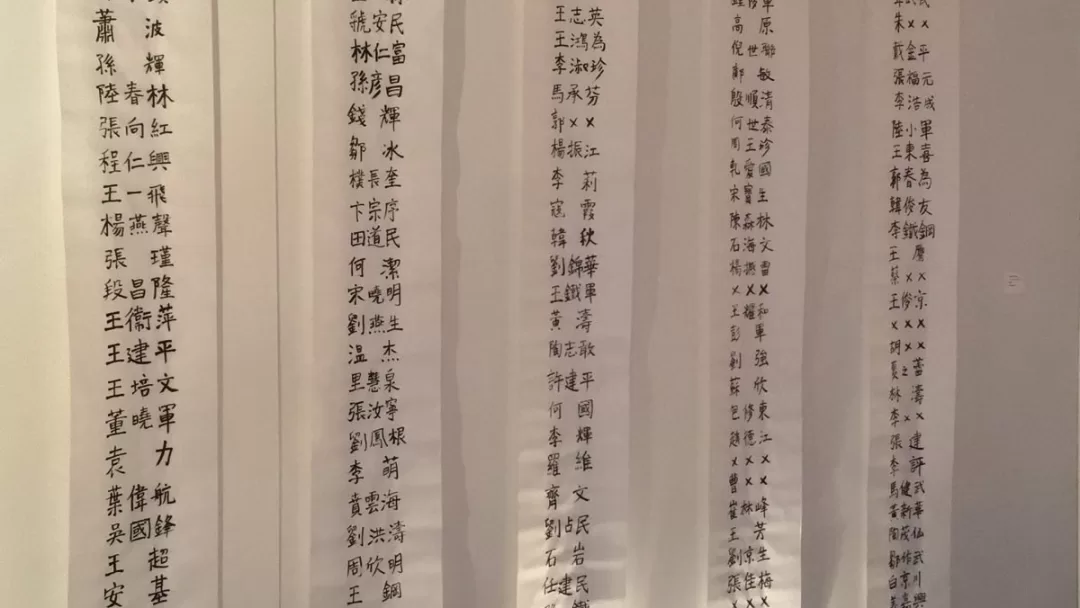 蕭 波
孫 輝
陸春林
張向紅
程仁興
王一飛
楊燕聲
張 瑾
段昌隆
王衛萍
王建平
王培文
董曉軍
袁 力
葉偉航
吳國鋒
王 超
安 基
號安民
林仁富
孫彥昌
錢 輝
鄒 冰
樸長奎
卞宗序
田道民
何 潔
宋曉明
劉燕生
溫 杰
里慧泉
張汝寧
劉鳳根
李 萌
賁雲海
劉洪濤
周欣明
王 鋼
王志英
王鴻為
李淑珍
馬承芬
郭××
楊振江
李 莉
寇 霞
韓 秋
劉錦華
王鐵軍
黃 濤
陶志敢
許建平
何 國
李 輝
羅 維
齊 文
劉占民
石 岩
任建民
高 原
倪世
郭 敏
殷順清
何世泰
周王珍
孔愛國
宋寶生
陳森林
石海文
楊燕雪
×××
王耀和
彭 軍
劉 強
蘇 欣
包修東
趙德江
×××
曹××
崔林峰
王 芳
劉京生
張佳梅
朱××
戴金平
張福元
李浩成
陸小軍
王東喜
郭春為
韓俊友
李鐵鋼
王
蔡××
王俊京
×××
胡××
夏之蕾
林 濤
李××
張 建
李 評
馬健武
黃新華
陶茂仏
鄒作武
白京川